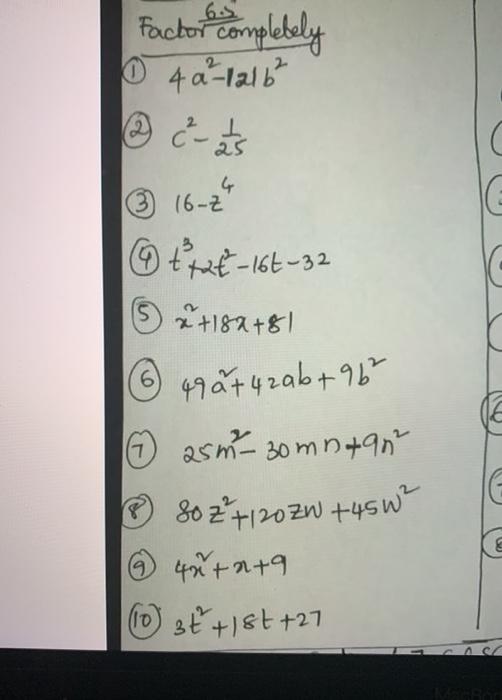 6.5
Factor completely
① 4a²-121b²
② c² - 1/25
③ 16-z⁴
④ t³+2t²-16t-32
⑤ x²+18x+81
⑥ 49a²+42ab+9b²
⑦ 25m²-30mn+9n²
⑧ 80z²+120zw+45w²
⑨ 4x²+x+9
⑩ 3t²+18t+27